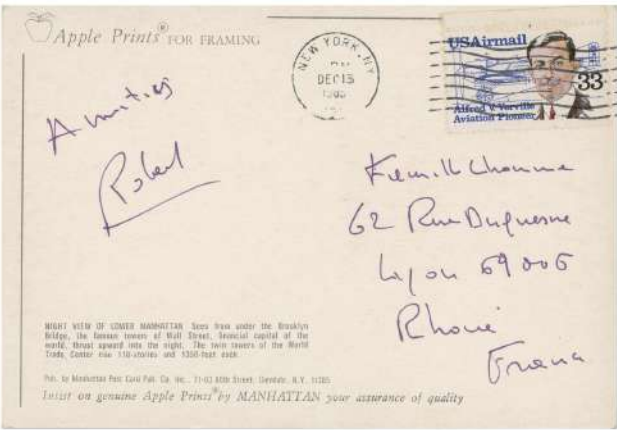 Apple Prints® FOR FRAMING
NEW YORK, NY
PM
DEC 13
USAirmail
33
Alfred V. Verville
Aviation Pioneer
Amitiés
Robert
62 Rue Duquesne
Lyon 69006
Rhône
France
NIGHT VIEW OF LOWER MANHATTAN Seen from under the Brooklyn
Bridge, the famous towers of Wall Street, financial capital of the
world, thrust upward into the night. The twin towers of the World
Trade Center rise 110-stories and 1350-feet each.
Pub. by Manhattan Post Card Pub. Co. Inc., 71-03 80th Street, Glendale, N.Y. 11385
Insist on genuine Apple Prints® by MANHATTAN your assurance of quality